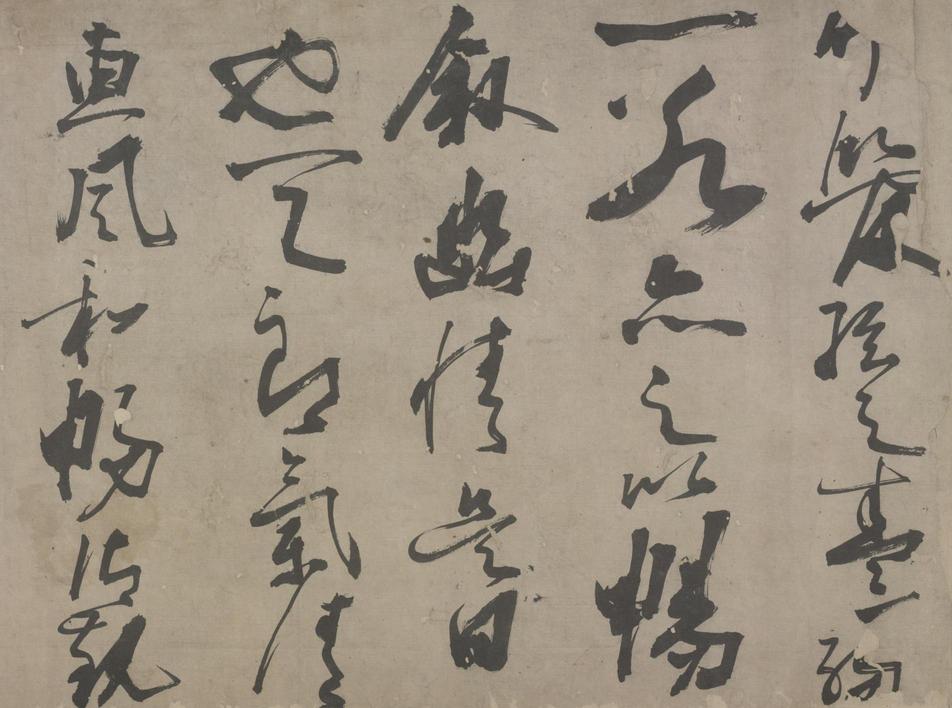 竹管絃之盛一觴
一詠亦足以暢
叙幽情是日
也天朗氣清
惠風和暢仰觀